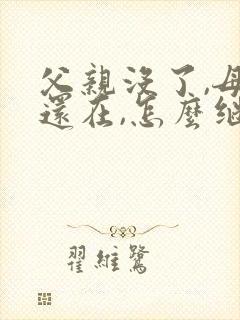 父親沒了,母
還在,怎麼繼
翟維鷺